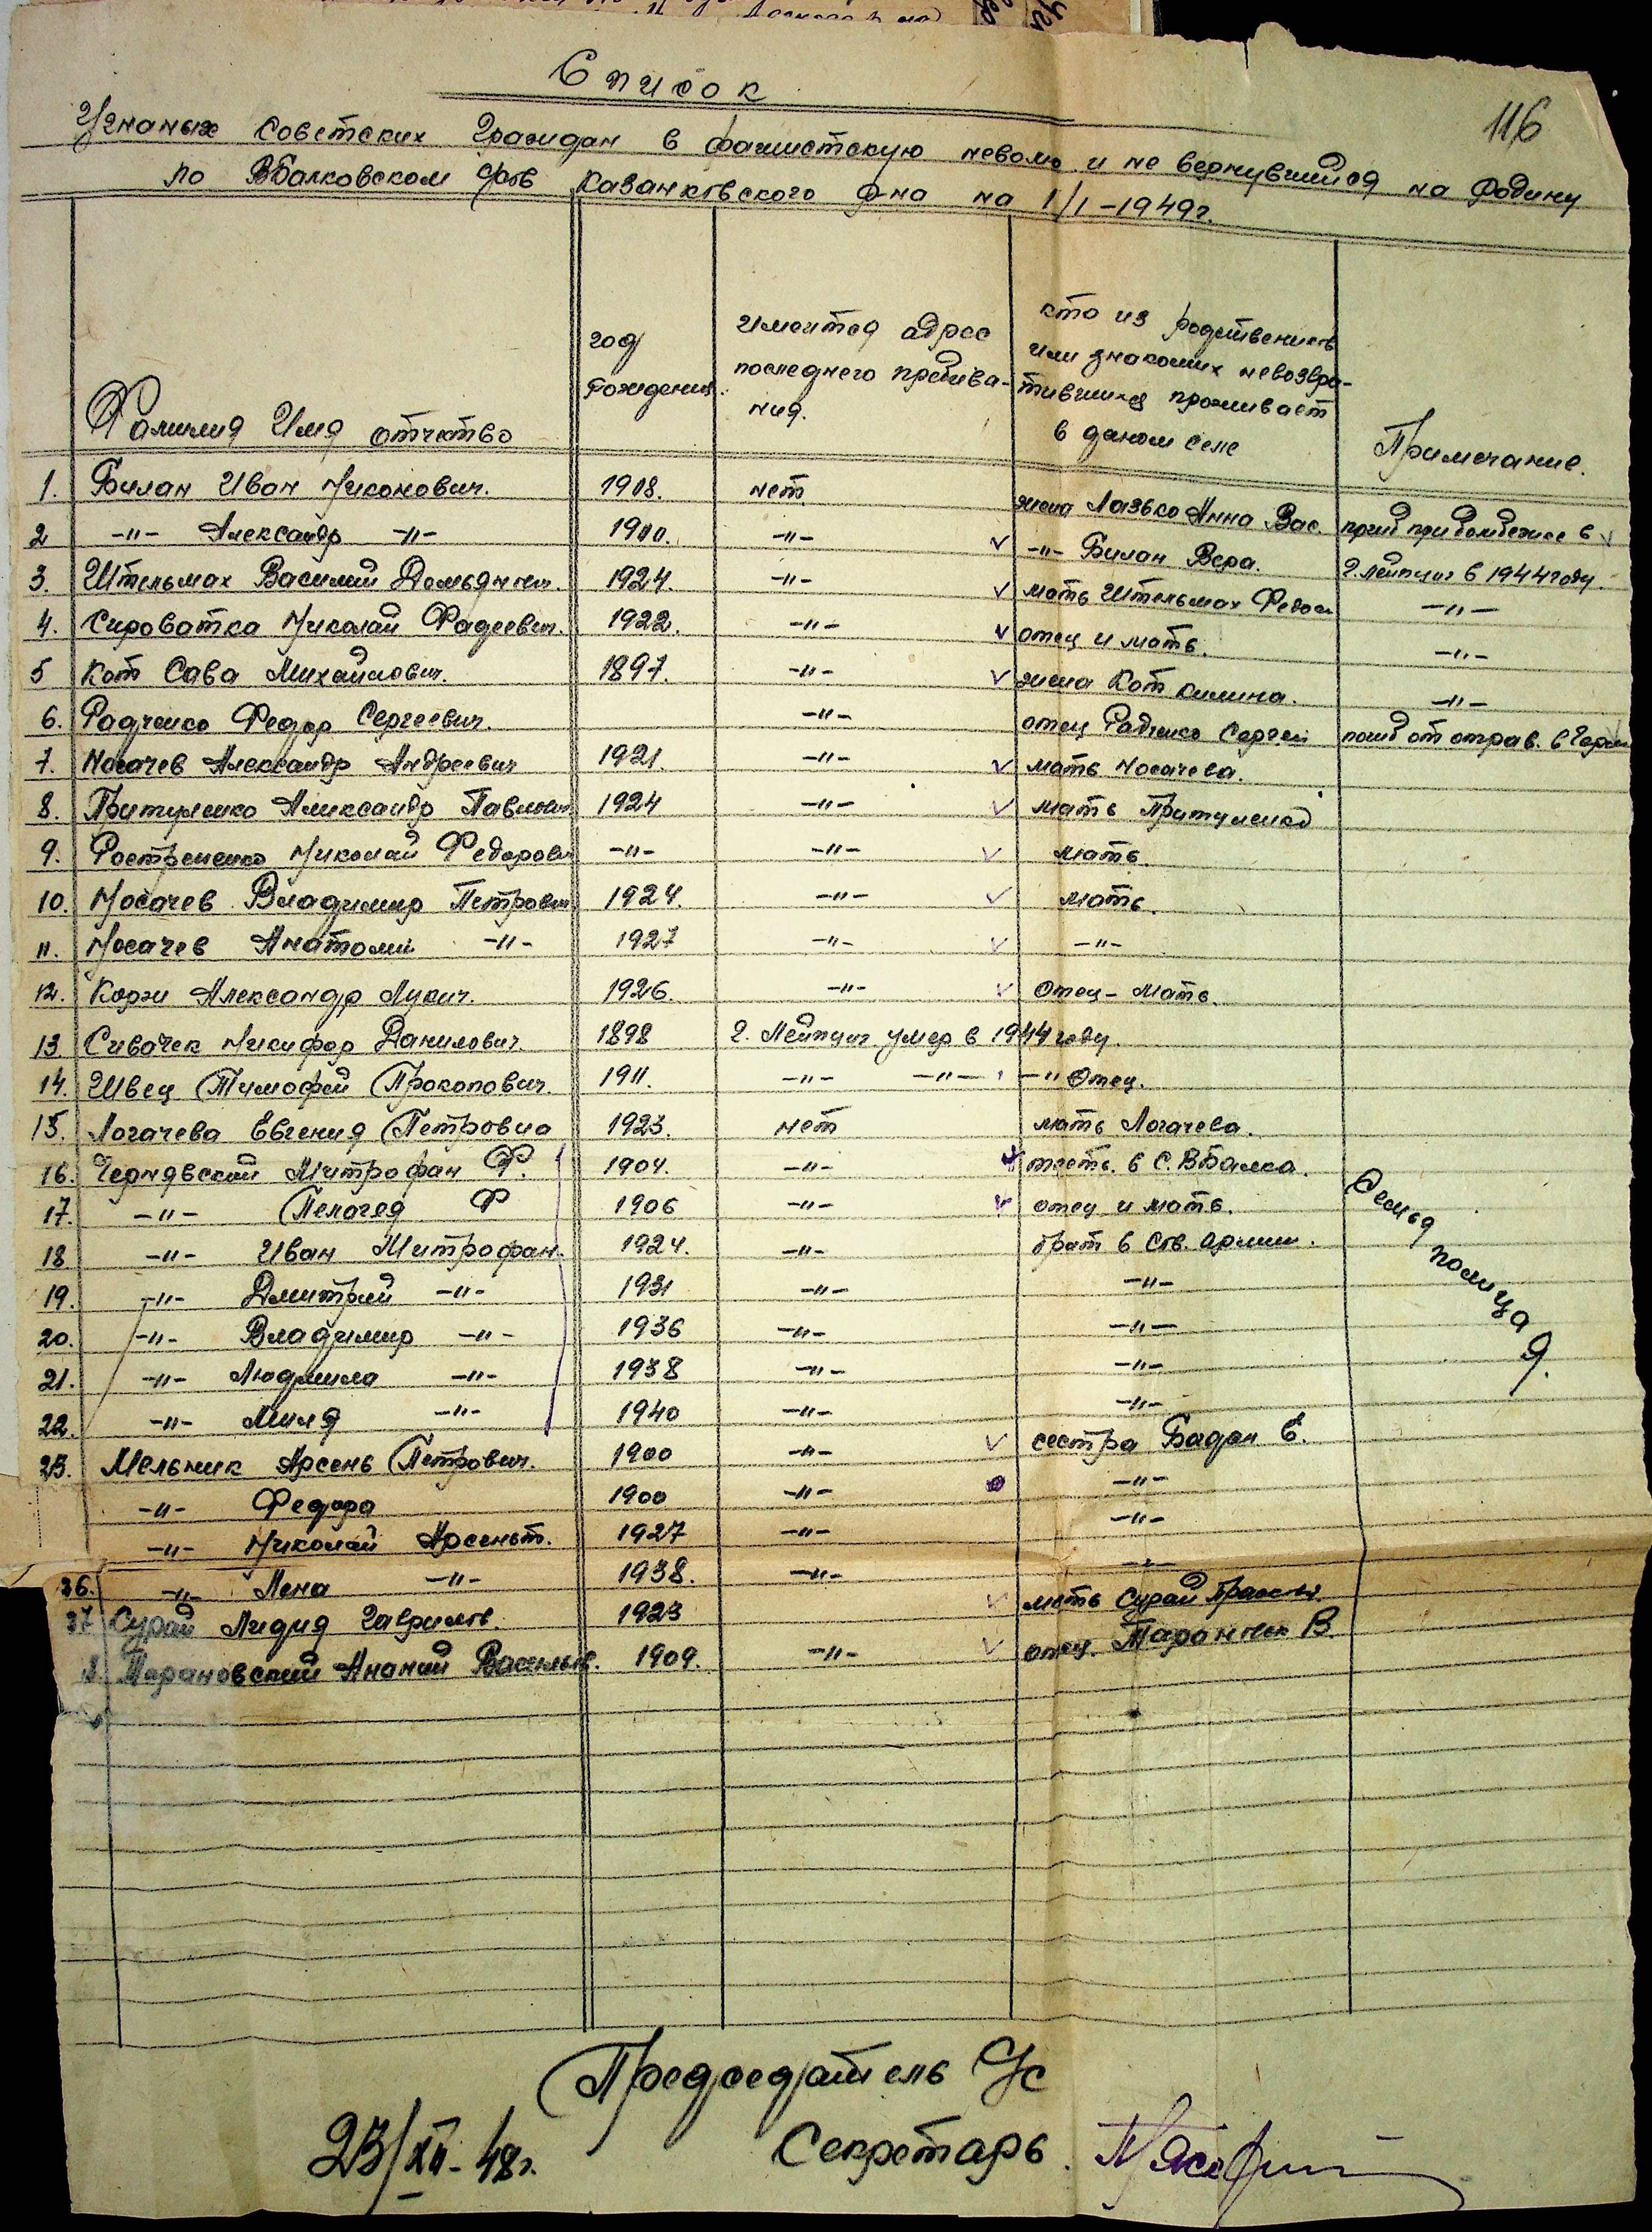 116
Список
Угнаных советских граждан в фашистскую неволю и не вернувшийся на родину
по ВБалковском с/сов Казанковского р-на на 1/I-1949г.
Фамилия Имя отчество
год рождения.
имеится адрес последнего пребива-ния.
кто из родствеников или знакомих невозвра-тившихся проживает в даном селе
Примечание.
1. Билан Иван Никонович. 1908. нет жена Лазько Анна Вас. погиб при бомбежке в
2 -"- Александр -"- 1910. -"- v -"- Билан Вера. г. Лейпциг в 1944 году.
3. Штельмах Василий Демьянович. 1924. -"- v мать Штельмах Федос -"-
4. Сироватка Николай Фадеевич. 1922. -"- v отец и мать. -"-
5 Кот Сава Михайлович. 1897. -"- v жена Кот килина. -"-
6. Радченко Федор Сергеевич. -"- отец Радченко Сергей погиб от отрав. в Герм
7. Носачев Александр Андреевич 1921. -"- v мать Носачева.
8. Притуленко Александр Павлович 1924 -"- v мать Притуленко
9. Ростременко Николай Федорович -"- -"- v мать.
10. Носачев Владимир Петрович 1924. -"- v мать.
11. Носачев Анатолий -"- 1927 -"- v -"-
12. Корж Александр Лукич. 1926. -"- v отец - мать.
13. Сивачек Никифор Данилович. 1898 г. Лейпциг умер в 1944 году.
14. Швец Тимофей Прокопович. 1911. -"- -"- -" Отец.
15. Логачева Евгения Петровна 1923. нет мать Логачева.
16. Чернявский Митрофан Ф. 1904. -"- тесть. в с. ВБалка.
17. -"- Пелогея Ф 1906 -"- v отец и мать.
18 -"- Иван Митрофан. 1924. -"- брат в Сов. армии.
19. -"- Дмитрий -"- 1931 -"- -"-
20. -"- Владимир -"- 1936 -"- -"-
21. -"- Людмила -"- 1938 -"- -"-
22. -"- Миля -"- 1940 -"- -"-
Семья полицая.
23. Мельник Арсень Петрович. 1900 -"- v сестра Бадан Е.
-"- Федора 1900 -"- -"-
-"- Николай Арсеньт. 1927 -"- -"-
26. -"- Лена -"- 1938. -"- -"-
27 Сурай Лидия Гаврилов. 1923 v мать Сурай
Тарановский Ананий Васильев. 1909. -"- v отец. В.
Председатель с/с
23/XII-48г.
Секретарь.